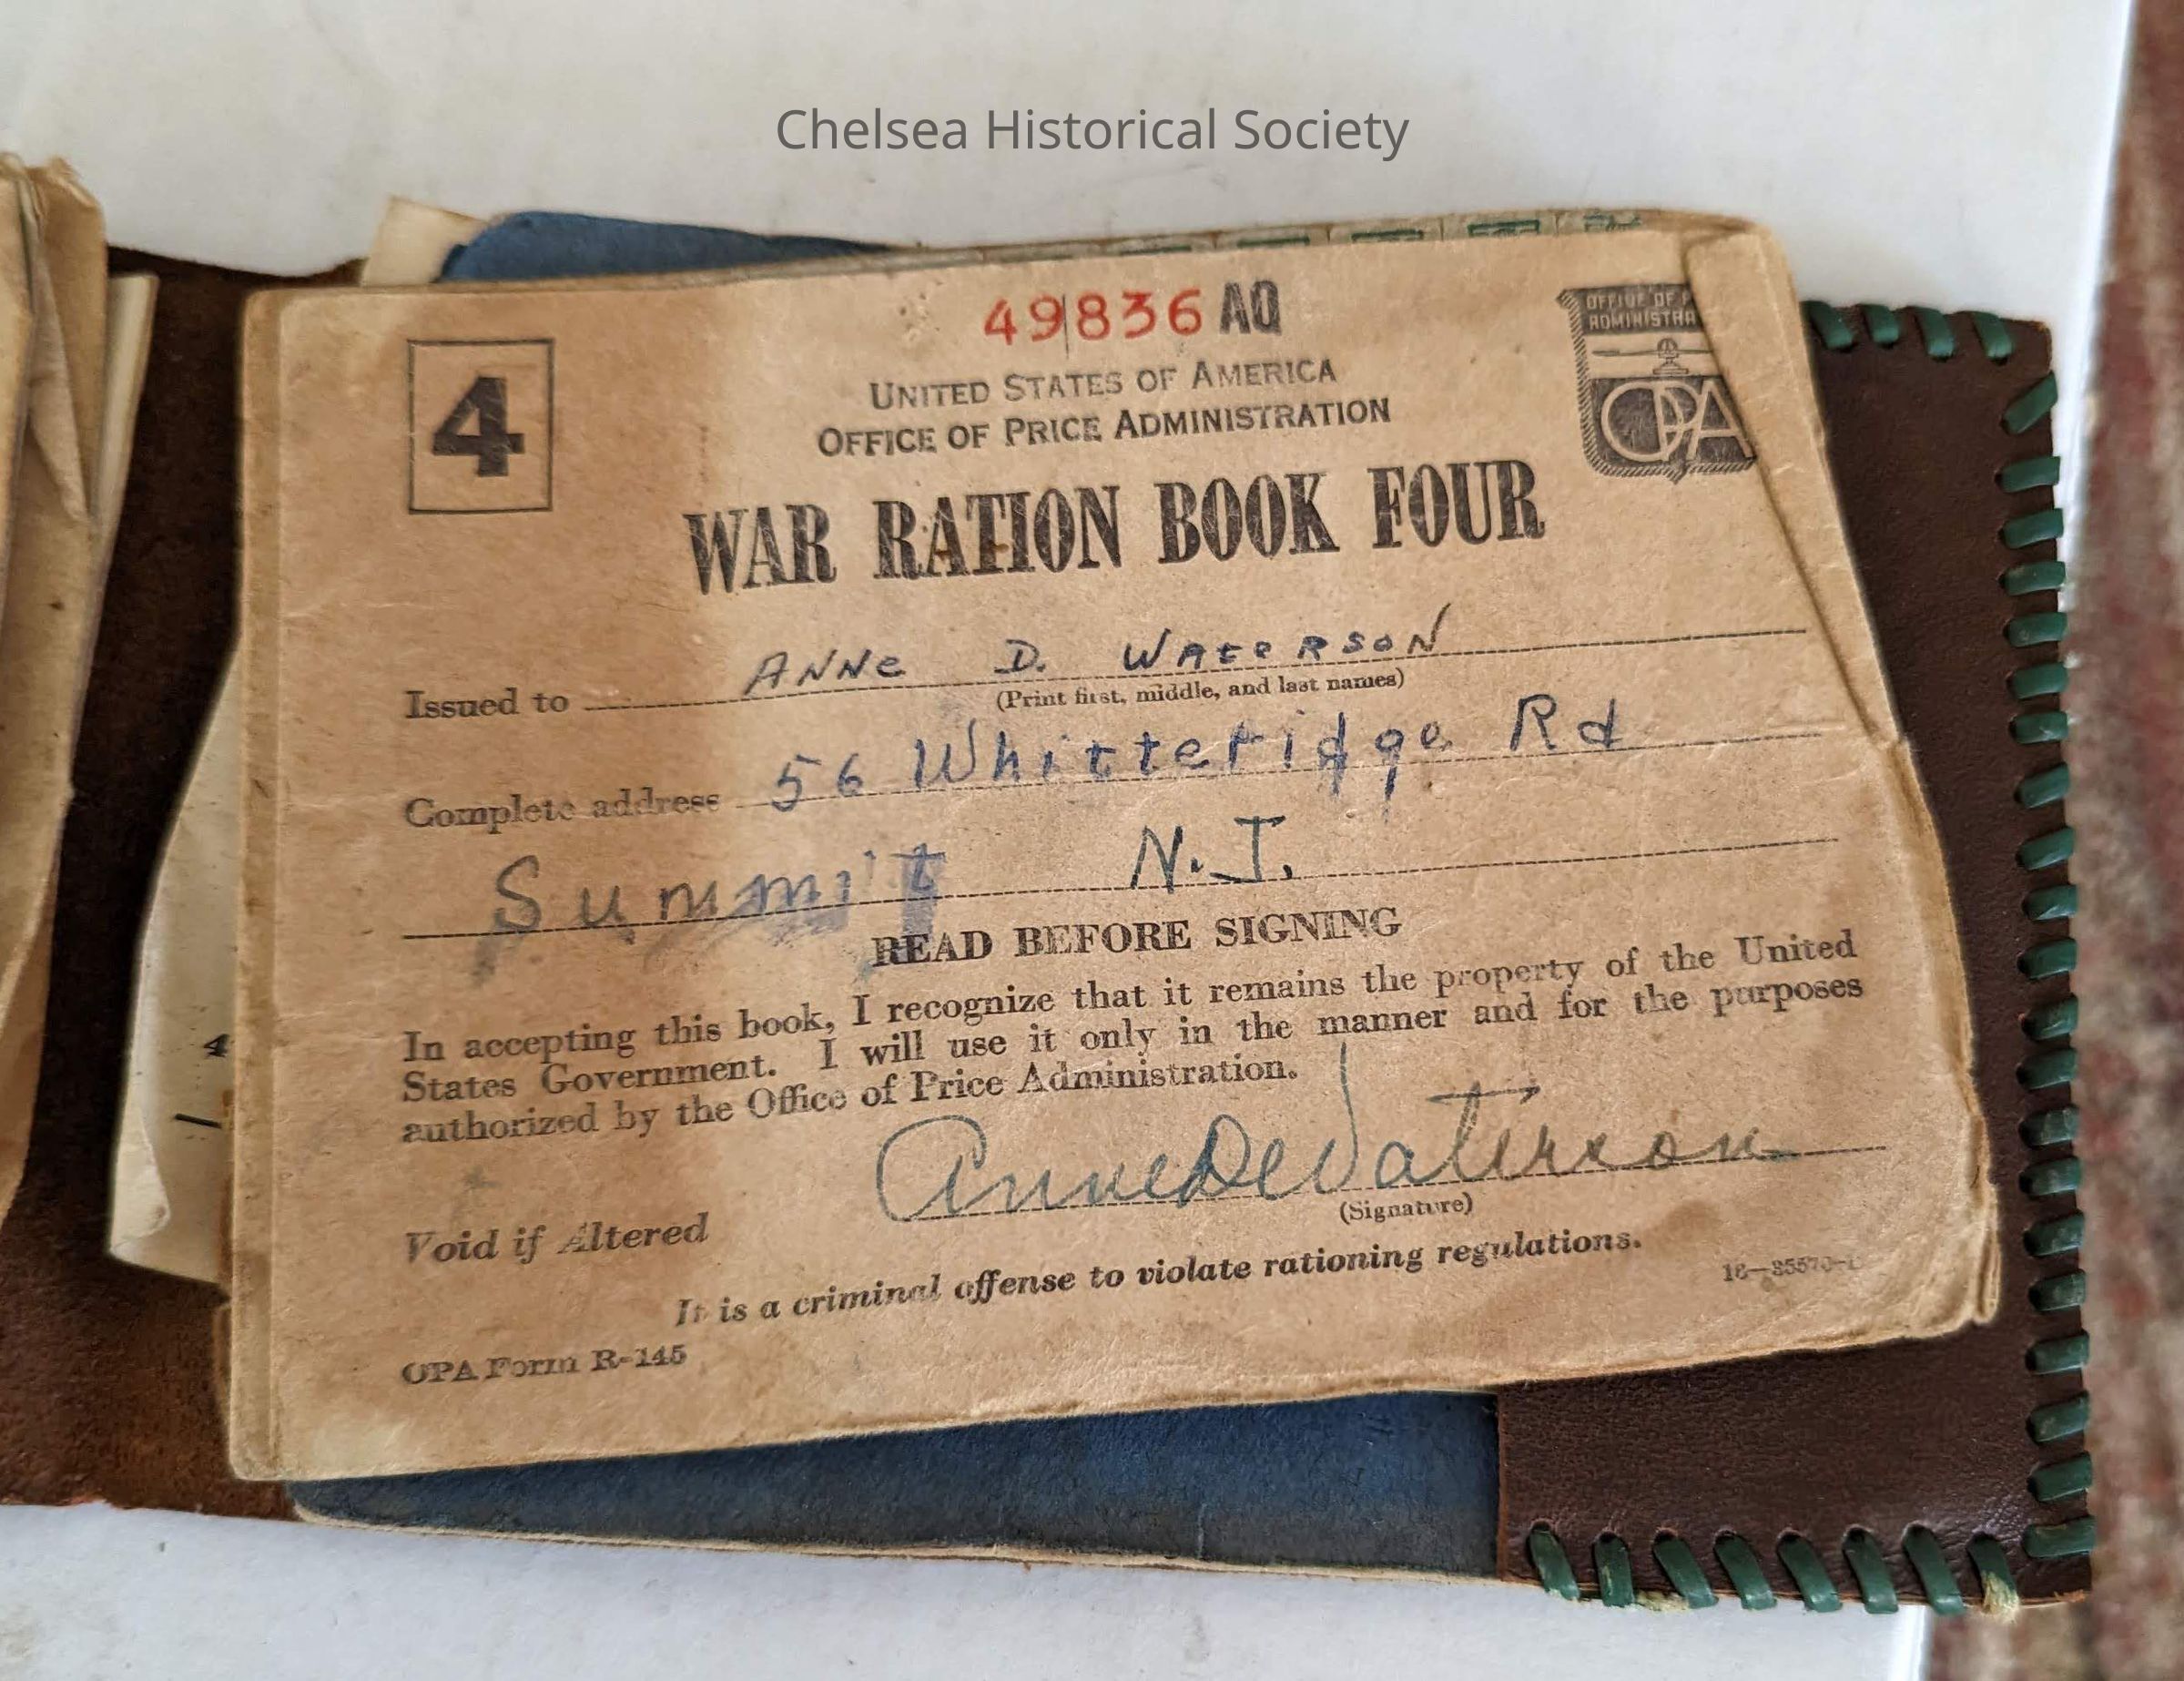 Chelsea Historical Society
49836 AQ
4
OFFICE OF P
ADMINISTRA
OPA
UNITED STATES OF AMERICA
OFFICE OF PRICE ADMINISTRATION
WAR RATION BOOK FOUR
Issued to ANNe D. WATeRSON
(Print first, middle, and last names)
Complete address 56 Whitteridge Rd
Summit N.J.
READ BEFORE SIGNING
In accepting this book, I recognize that it remains the property of the United
States Government. I will use it only in the manner and for the purposes
authorized by the Office of Price Administration.
Anne De Waterson
(Signature)
Void if Altered
It is a criminal offense to violate rationing regulations.
OPA Form R-145
4